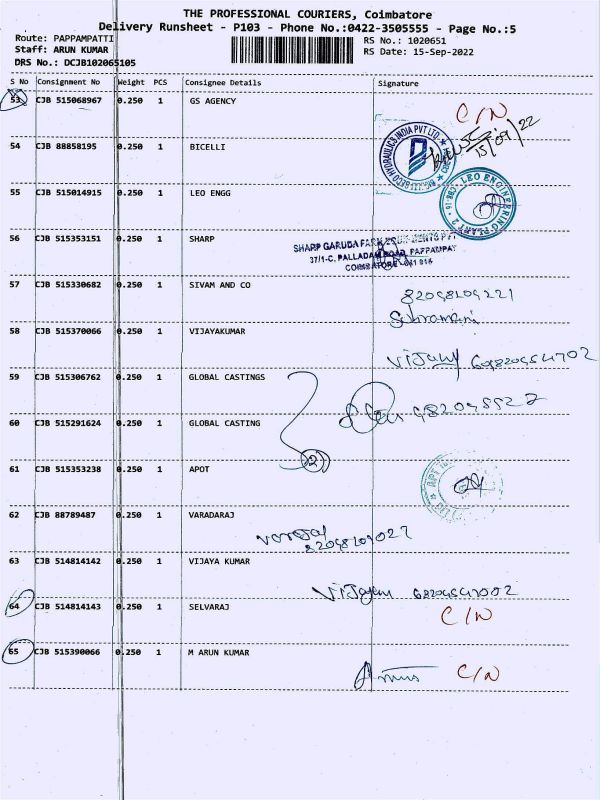 THE PROFESSIONAL COURIERS, Coimbatore
Delivery Runsheet - P103 - Phone No.:0422-3505555 - Page No.:5
Route: PAPPAMPATTI
Staff: ARUN KUMAR
DRS No.: DCJB102065105
RS No.: 1020651
RS Date: 15-Sep-2022
S No Consignment No Weight PCS Consignee Details Signature
53 CJB 515068967 0.250 1 GS AGENCY C/N
15/09/22
54 CJB 88858195 0.250 1 BICELLI
HYDRAULICS INDIA PVT LTD
55 CJB 515014915 0.250 1 LEO ENGG
LEO ENGINEERING PLANT 2
56 CJB 515353151 0.250 1 SHARP
SHARP GARUDA FARM
37/1-C, PALLADAM ROAD, PAPPAMPAT
COIMBATORE - 641 016
57 CJB 515330682 0.250 1 SIVAM AND CO
58 CJB 515370066 0.250 1 VIJAYAKUMAR
59 CJB 515306762 0.250 1 GLOBAL CASTINGS
60 CJB 515291624 0.250 1 GLOBAL CASTING
2
61 CJB 515353238 0.250 1 APOT
62 CJB 88789487 0.250 1 VARADARAJ
63 CJB 514814142 0.250 1 VIJAYA KUMAR
64 CJB 514814143 0.250 1 SELVARAJ C/N
65 CJB 515390066 0.250 1 M ARUN KUMAR C/N